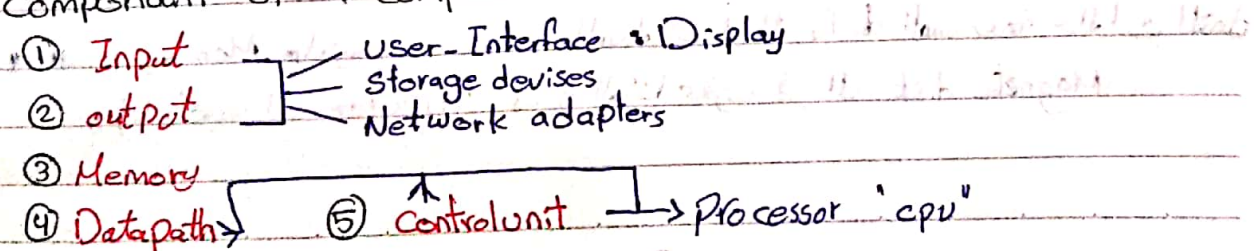 ① Input User-Interface : Display
Storage devises
② output Network adapters
③ Memory
④ Datapath ⑤ Controlunit → Processor "cpu"